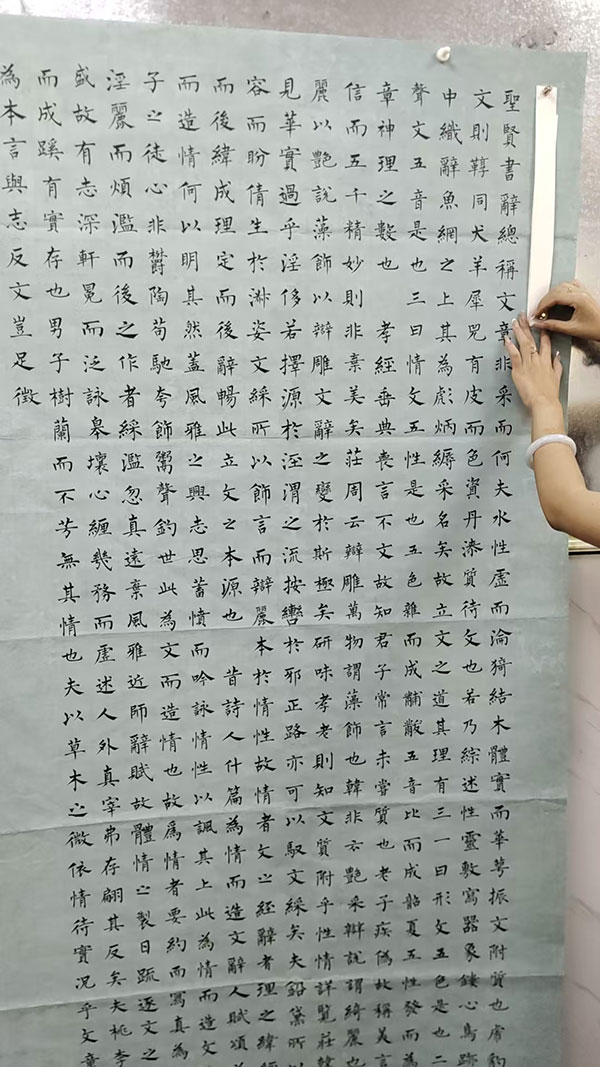 聖賢書辭總稱文章非采而何夫水性虛而淪猗結木體實而華萼振文附質也虎豹
文則鞟同犬羊犀兕有皮而色資丹漆質待文也若乃綜述性靈敷寫器象鏤心鳥跡
中織辭魚網之上其為彪炳縟采名矣故立文之道其理有三一曰形文五色是也二
聲文五音是也三曰情文五性是也五色雜而成黼黻五音比而成韶夏五性發而為
章神理之數也 孝經垂典喪言不文故知君子常言未嘗質也老子疾偽故稱美言
信而五千精妙則非棄美矣莊周云辯雕萬物謂藻飾也韓非云艷采辯說謂綺麗也
麗以艷說藻飾以辯雕文辭之變於斯極矣研味孝老則知文質附乎性情詳覽莊韓
見華實過乎淫侈若擇源於涇渭之流按轡於邪正路亦可以馭文綵矣夫鉛黛所以
容而盼倩生於淑姿文綵所以飾言而辯麗本於情性故情者文之經辭者理之緯經
而後緯成理定而後辭暢此立文之本源也 昔詩人什篇為情而造文辭人賦頌為
而造情何以明其然蓋風雅之興志思蓄憤而吟詠情性以諷其上此為情而造文
子之徒心非鬱陶苟馳夸飾鬻聲釣世此為文而造情也故為情者要約而寫真為
淫麗而煩濫而後之作者綵濫忽真遠棄風雅近師辭賦故體情之製日疏逐文之
盛故有志深軒冕而泛詠皋壤心纏幾務而虛述人外真宰弗存翩其反矣夫桃李
而成蹊有實存也男子樹蘭而不芳無其情也夫以草木之微依情待實況乎文章
為本言與志反文豈足徵